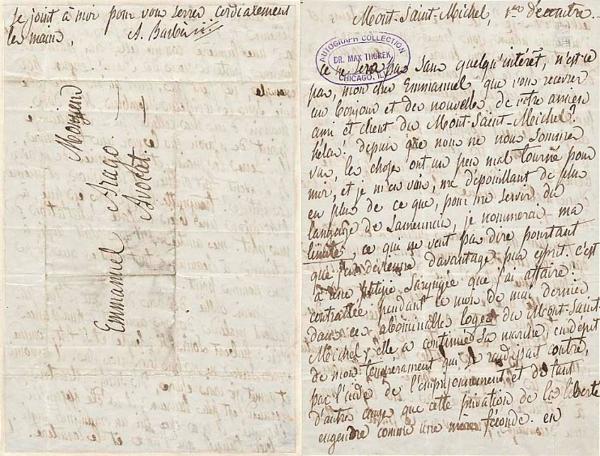 se joint à moi pour vous serrer cordialement
les mains. A. Barbès
Monsieur
Emmanuel Arago
Avocat.
Mont-Saint-Michel, 1er décembre
AUTOGRAPH COLLECTION
DR. MAX THOREK
CHICAGO, ILL.
ce ne sera pas sans quelqu'intérêt, n'est-ce
pas, mon cher Emmanuel que vous recevrez
un bonjour et des nouvelles de votre ancien
ami et client du Mont-Saint-Michel.
hélas! depuis que nous ne nous sommes
vus, les choses ont un peu mal tourné pour
moi, et je m'en vais, me dépouillant de plus
en plus de ce que, pour me servir du
langage de Lamennais, je nommerai ma
limite, ce qui ne veut pas dire pourtant
que je devienne davantage pur esprit. c'est
à une phtisie laryngée que j'ai affaire:
contractée pendant le mois de mai dernier
dans ces abominables loges du Mont-Saint-
Michel, elle a continué sa marche, en dépit
de mon tempérament qui se raidissait contre,
par l'aide de l'emprisonnement et de tant
d'autres causes que cette privation de la liberté
engendre comme une mère féconde. en